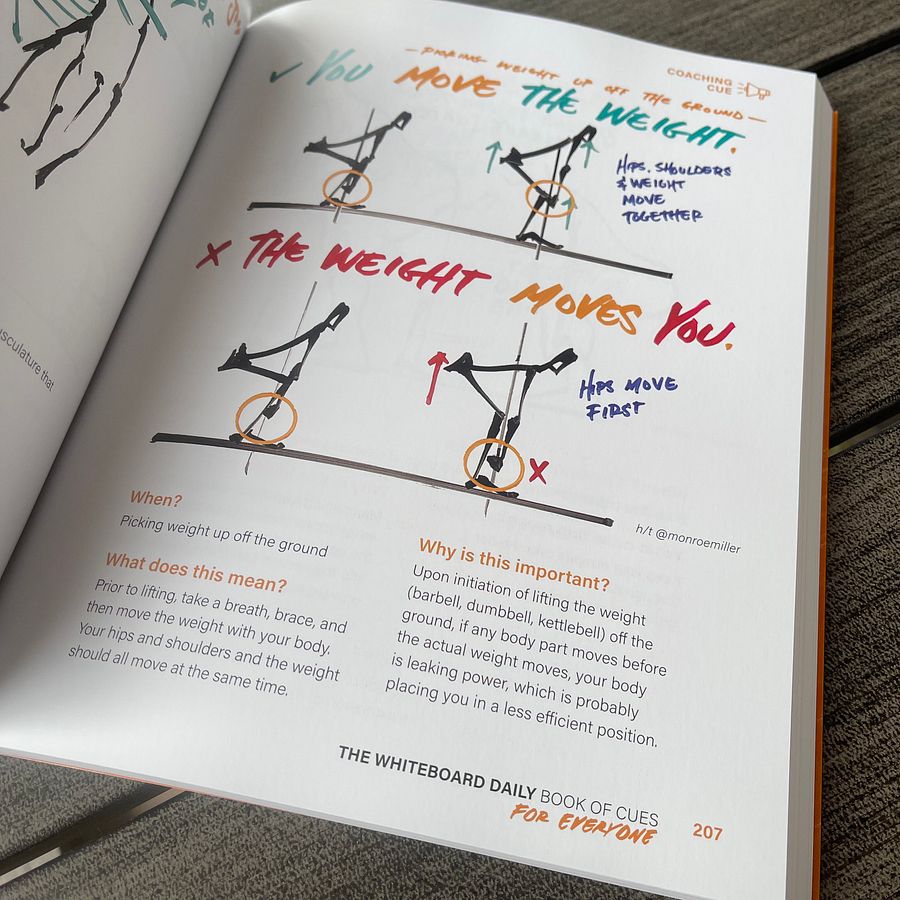 usculature that
COACHING
CUE
— PICKING WEIGHT UP OFF THE GROUND —
✓ YOU MOVE THE WEIGHT.
HIPS, SHOULDERS
& WEIGHT
MOVE
TOGETHER
X THE WEIGHT MOVES YOU.
HIPS MOVE
FIRST
X
h/t @monroemiller
When?
Picking weight up off the ground
What does this mean?
Prior to lifting, take a breath, brace, and
then move the weight with your body.
Your hips and shoulders and the weight
should all move at the same time.
Why is this important?
Upon initiation of lifting the weight
(barbell, dumbbell, kettlebell) off the
ground, if any body part moves before
the actual weight moves, your body
is leaking power, which is probably
placing you in a less efficient position.
THE WHITEBOARD DAILY BOOK OF CUES
FOR EVERYONE
207